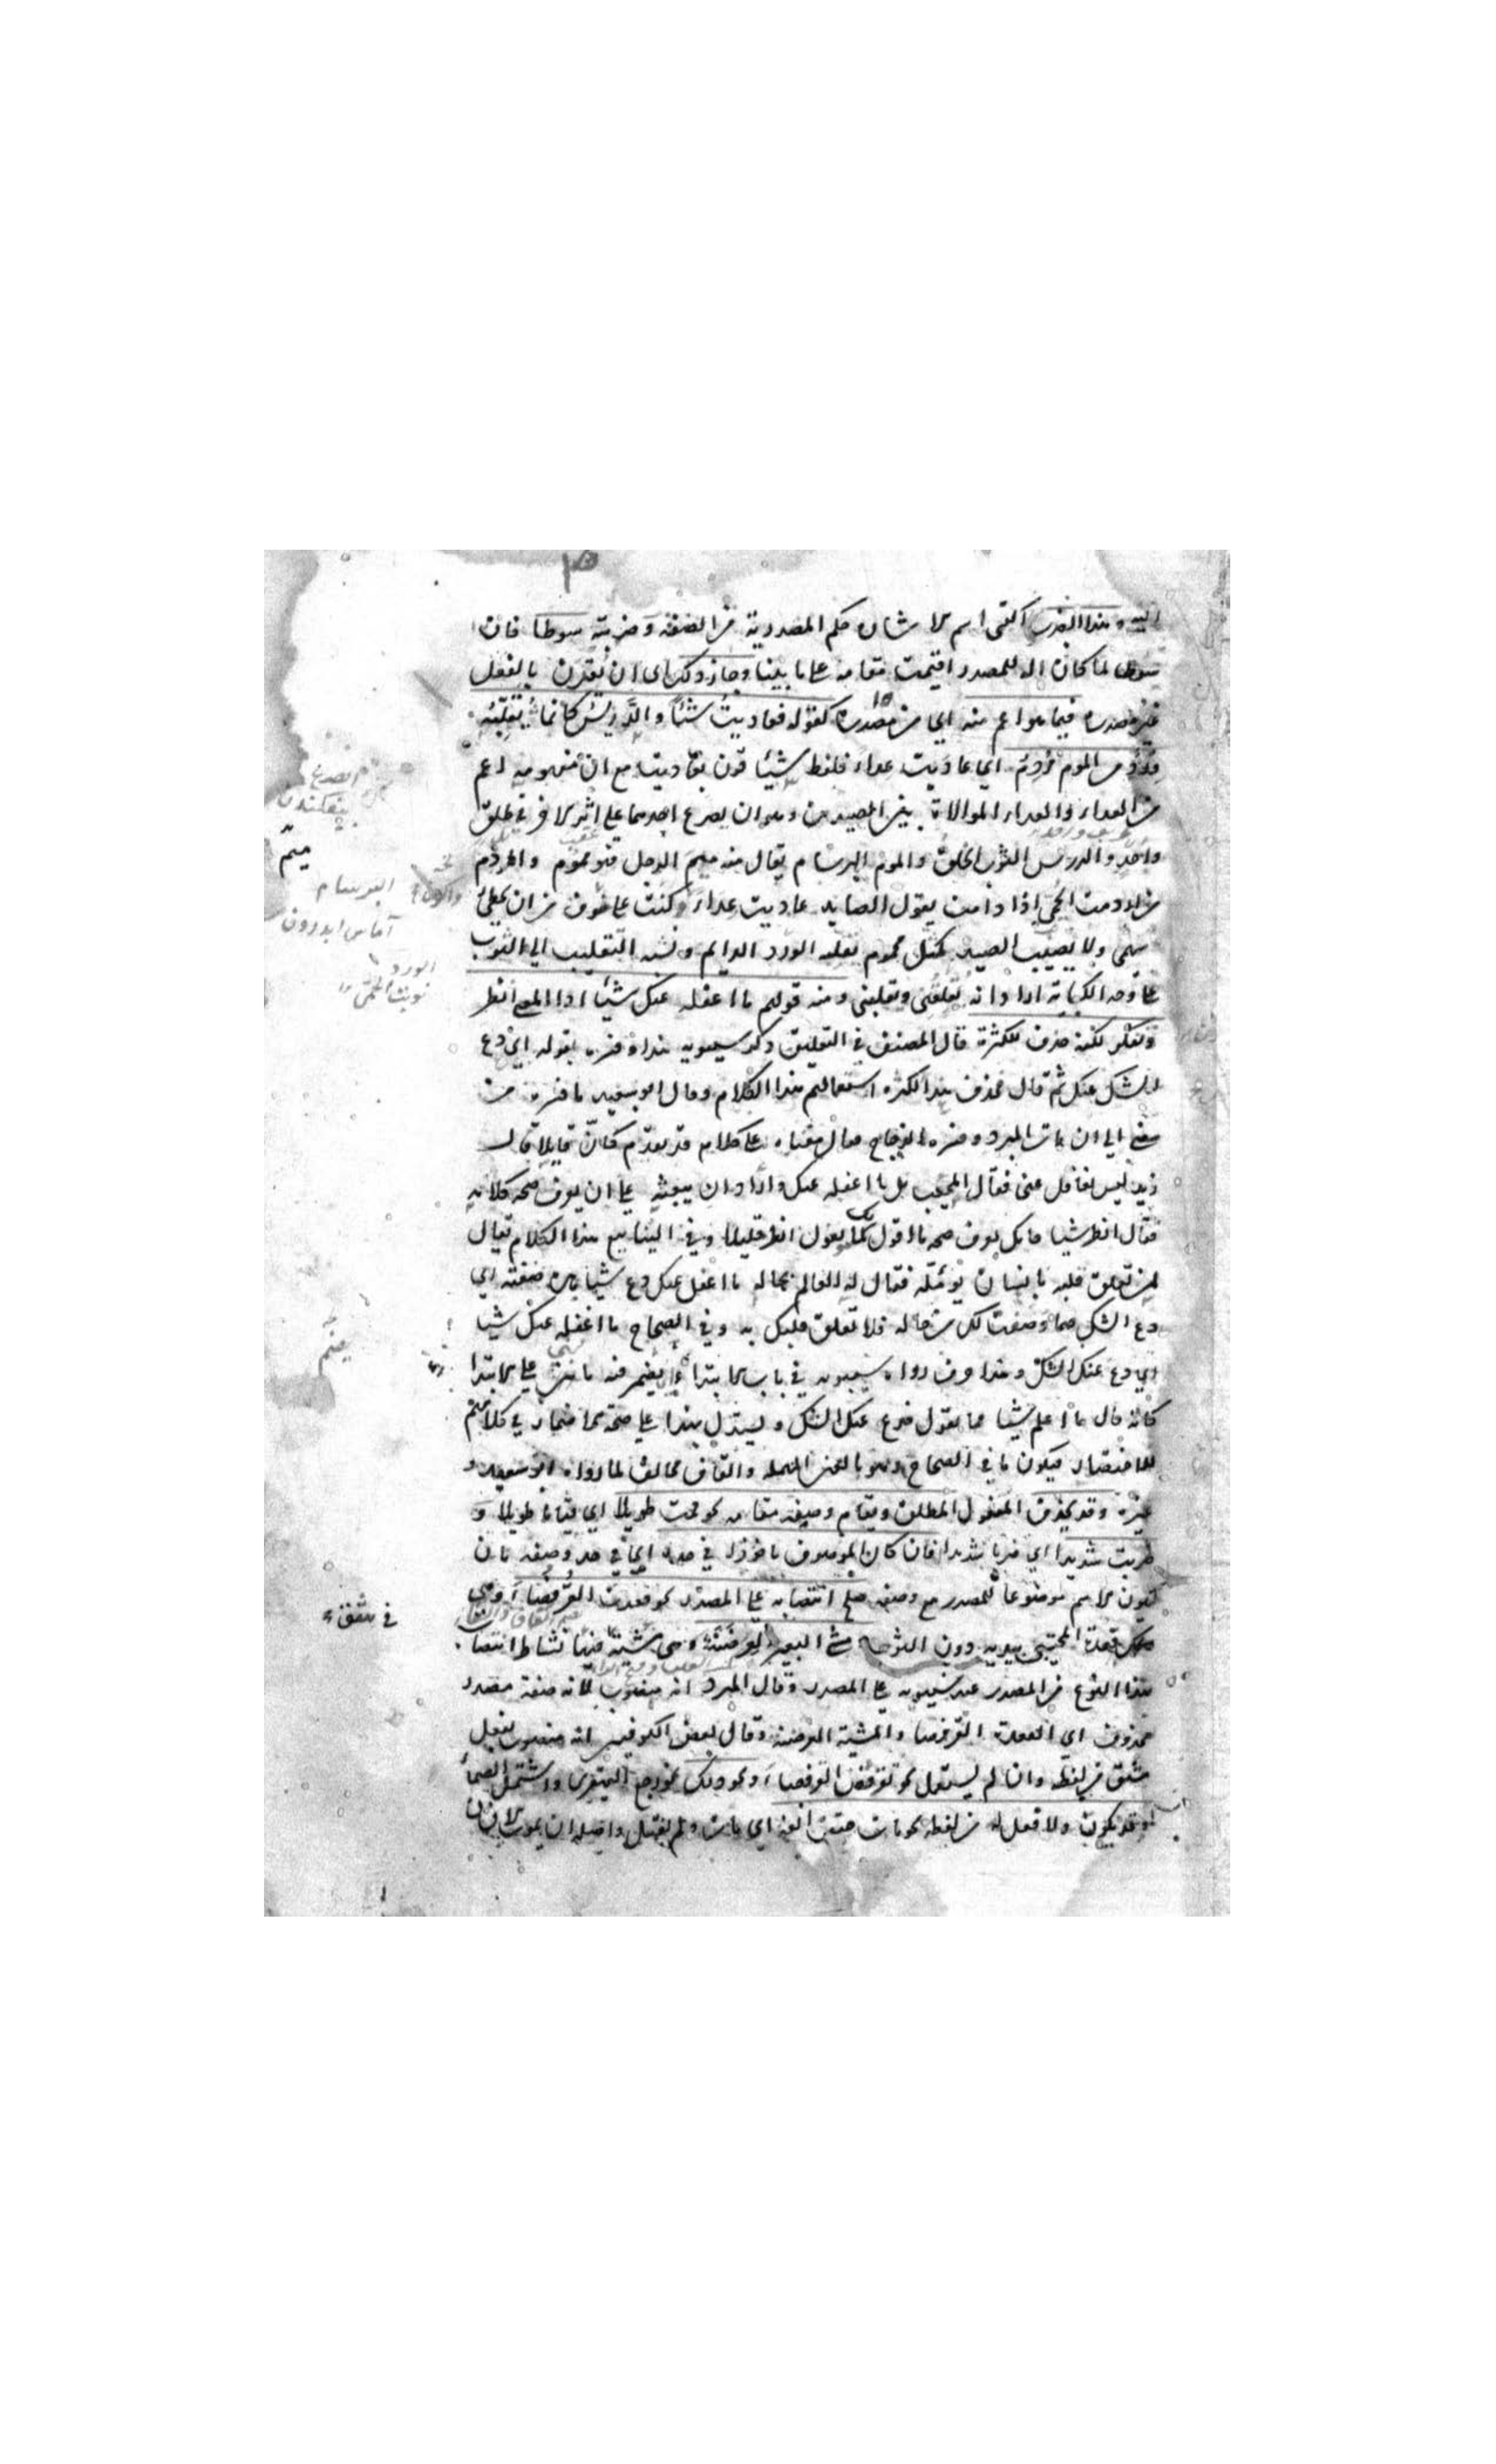 اليه وهذا الضرب اكتسى اسم الاشارة حكم المصدرية من الصفة وضربته سوطا فان
سوطا لما كان آلة للمصدر اقيمت مقامه على ما بينا وجاز ذلك اى ان يقرن بالفعل
غير مصدره فيما هو اعم منه اي من مصدره كقوله فعاديت شيئا والدريس كانما يقلبه
ورد من الموم مردم اي عاديت عداء فلفظ شيئا قرن بعاديت مع ان مفهومه اعم
من العداء والعداء الموالاة بين الصيدين وهو ان يصرع احدهما على اثر الآخر في طلق
واحد والدريس الثوب الخلق والموم البرسام يقال منه ميم الرجل فهو مموم والمردم
من اردمت الحمى اذا دامت يقول الصايد عاديت عداء وكنت على خوف من ان يخطئ
سهمي ولا يصيب الصيد كمثل محموم تقلبه الورد الدايم ونسبة التقليب الى الثوب
على وجه الكناية اراد انه يقلقنى ويقلبنى ومنه قولهم ما اغفله عنك شيئا اذا المعنى انظر
وتفكر لكنه حذف للكثرة قال المصنف في التعليق ذكر سيبويه هذا وفسره بقوله اي دع
الشك عنك ثم قال فحذف هذا لكثرة استعمالهم هذا الكلام وقال ابو سعيد ما فسره من
مضى الى ان مات المبرد وفسره الزجاج فقال معناه على كلام قد تقدم كأن قايلا قال
زيد ليس بغافل عنى فقال المجيب بل ما اغفله عنك واراد ان يبعثه على ان يعرف صحة كلامه
فقال انظر شيئا فانك تعرف صحة ما اقول كما يقول انظر قليلا وفي الينابيع هذا الكلام يقال
لمن تعلق قلبه بانسان يؤمله فقال له العالم بحاله ما اغفله عنك دع شيئا من صفته اي
دع الشك فيما وصفت لك من حاله فلا تعلق قلبك به وفي الصحاح ما اغفله عنك شيئا
اي دع عنك الشك وهذا حرف رواه سيبويه في باب الابتداء يضمر فيه ما بنى على الابتدا
كانه قال ما اعلم شيئا مما تقول فدع عنك الشك ويستدل بهذا على صحة الاضمار في كلامهم
للاختصار فيكون ما في الصحاح وهو بالعين المهملة والقاف مخالف لما رواه ابو سعيد و
غيره وقد يحذف المفعول المطلق ويقام وصفه مقامه نحو قمت طويلا اي قياما طويلا و
ضربت شديدا اي ضربا شديدا فان كان الموصوف ماخوذا في حده اي في حد وصفه بان
يكون الاسم موضوعا للمصدر مع وصفه صلح انتصابه على المصدر نحو قعدت القرفصاء وهي
قعدة المحتبي بيديه دون الثوب مشى البعير العرضنة وهي مشية فيها نشاط انتصاب
هذا النوع من المصدر عند سيبويه على المصدر وقال المبرد انه منصوب لانه صفة مصدر
محذوف اي القعدة القرفصا والمشية العرضنة وقال بعض الكوفيين انه منصوب بفعل
مشتق من لفظه وان لم يستعمل نحو تقرفص القرفصاء ونحو ذلك نحو رجع القهقرى واشتمل الصماء
وقد يكون ولا فعل له من لفظه نحو مات حتف انفه اي مات ولم يقتل واصله ان يموت الانسان
الصرع
بيقمكندن
ميم
البرسام
آماس اندرون
الورد
نوبت الحمى
يضم
في شقق